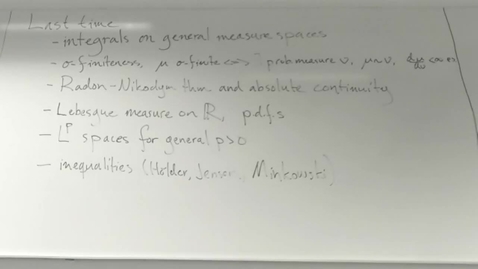 Last time
- integrals on general measure spaces
- σ-finiteness, μ σ-finite <=> ∃ prob measure ν, μ~ν,
- Radon-Nikodym thm and absolute continuity
- Lebesgue measure on ℝ, p.d.f.s
- L^p spaces for general p>0
- inequalities (Hölder, Jensen, Minkowski)